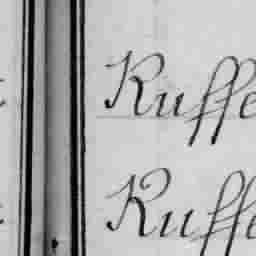 Ruffe
Ruffe